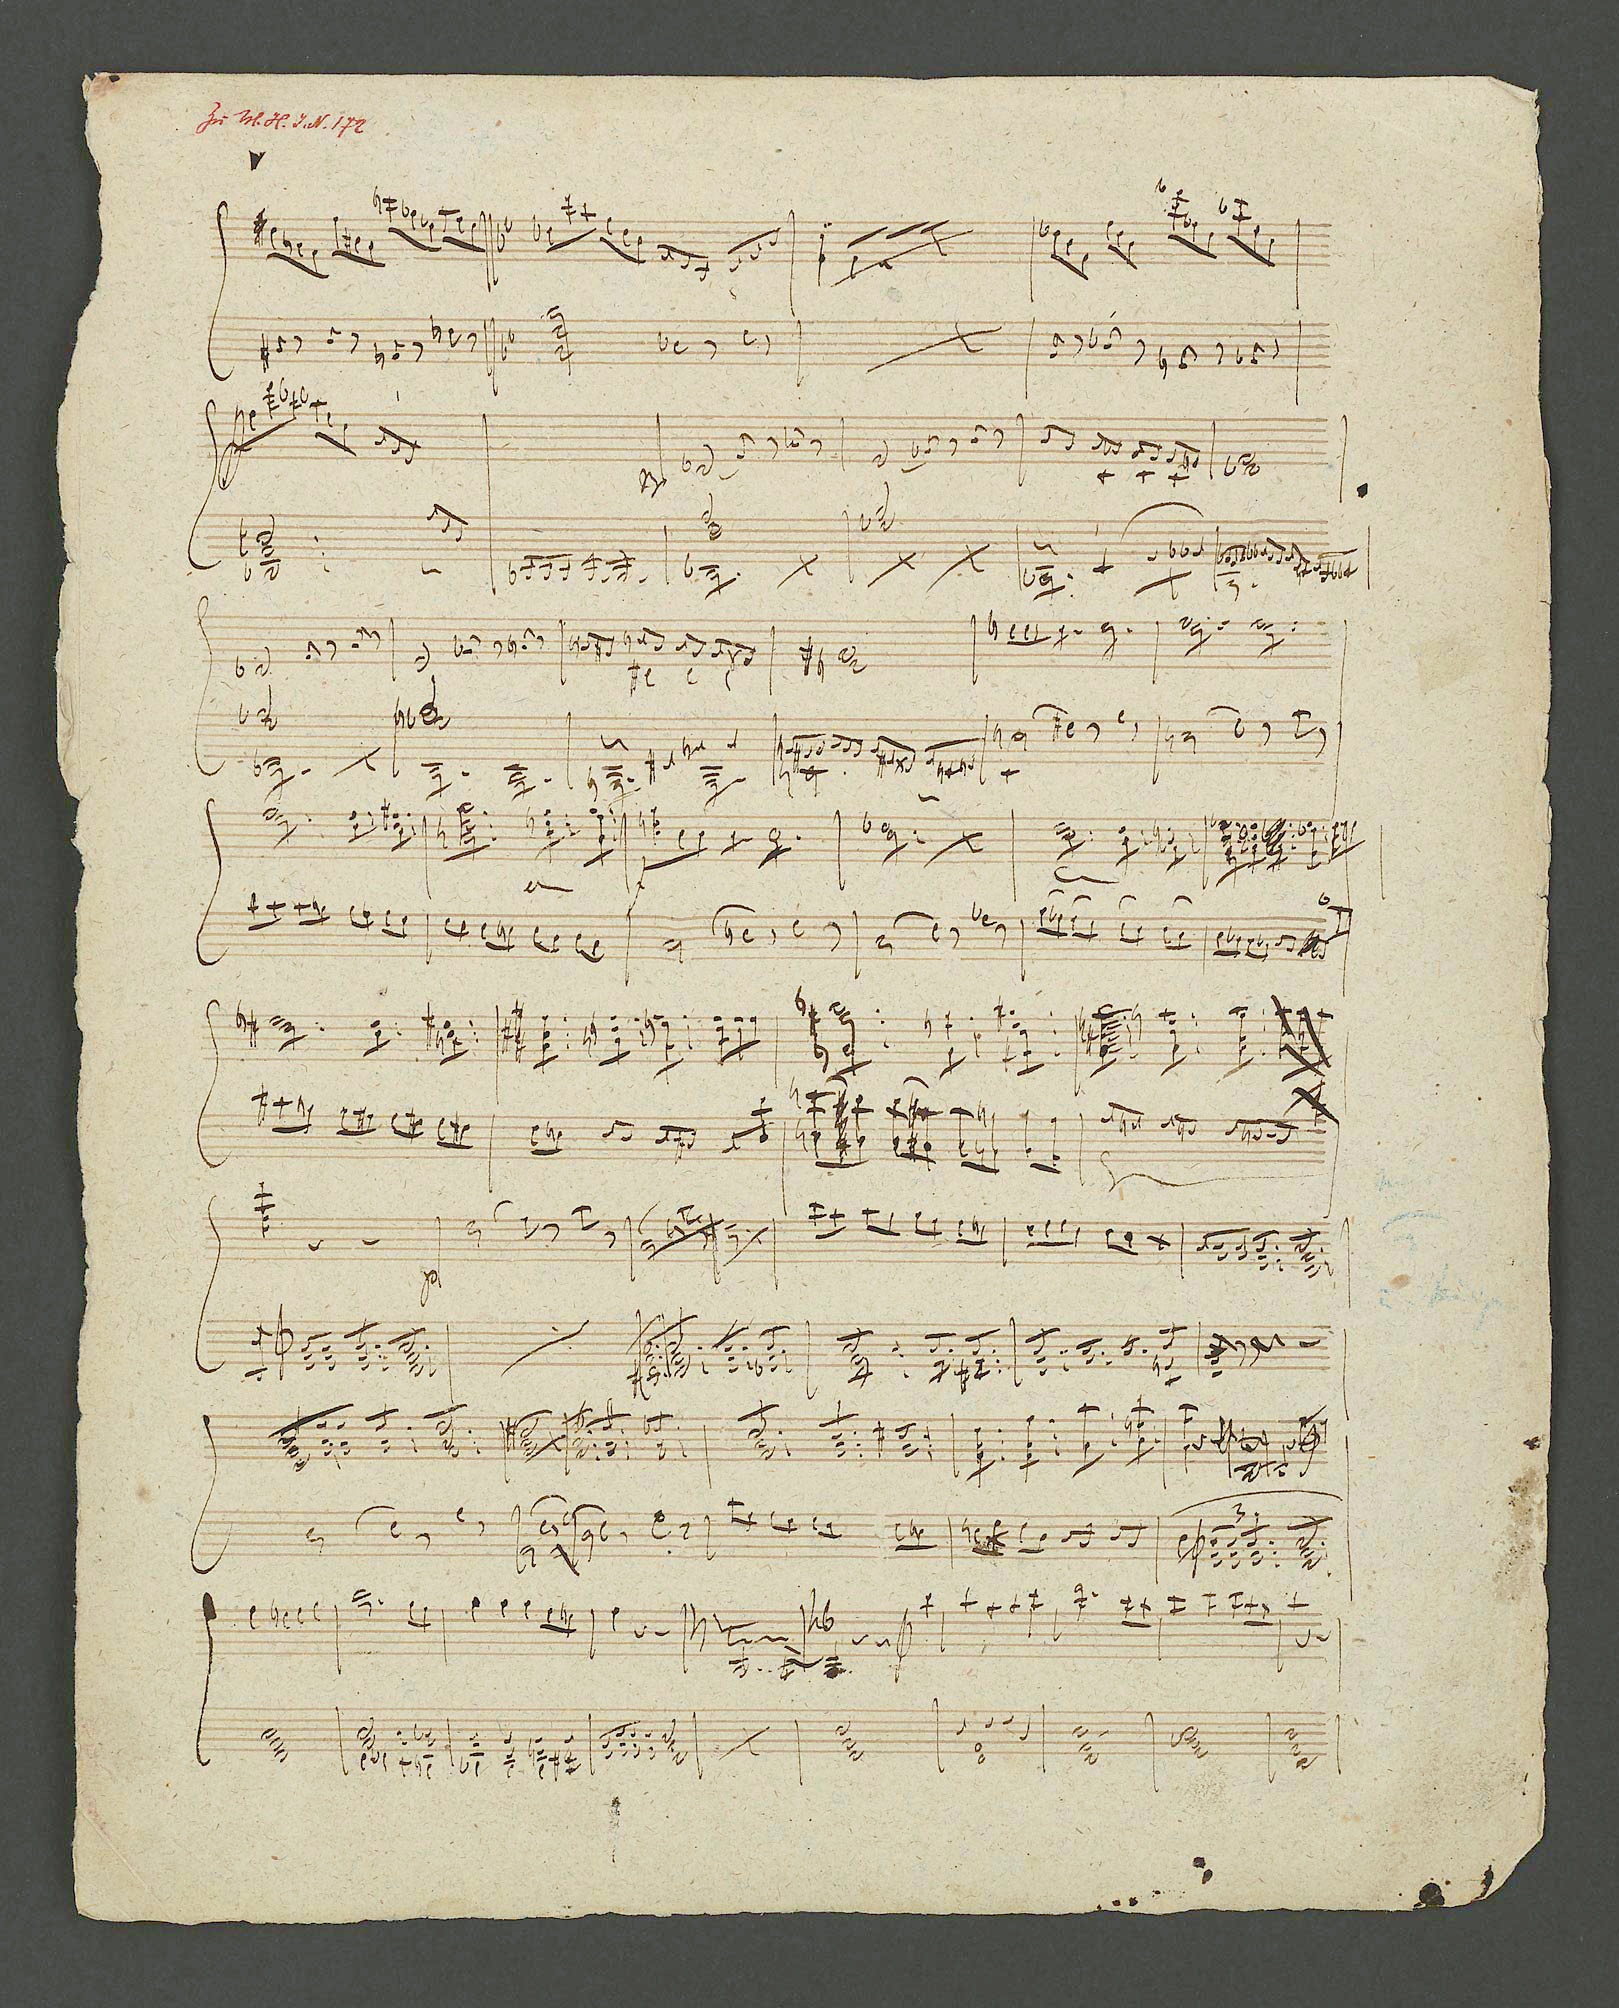 Zu M.H.I.N. 172